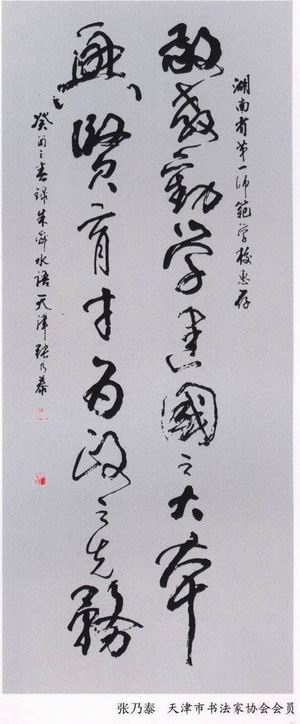 湖南省第一师範学校惠存
敬教勸学建國之大本
興賢育才为政之先務
癸酉之春録朱舜水語天津張乃泰
张乃泰 天津市书法家协会会员